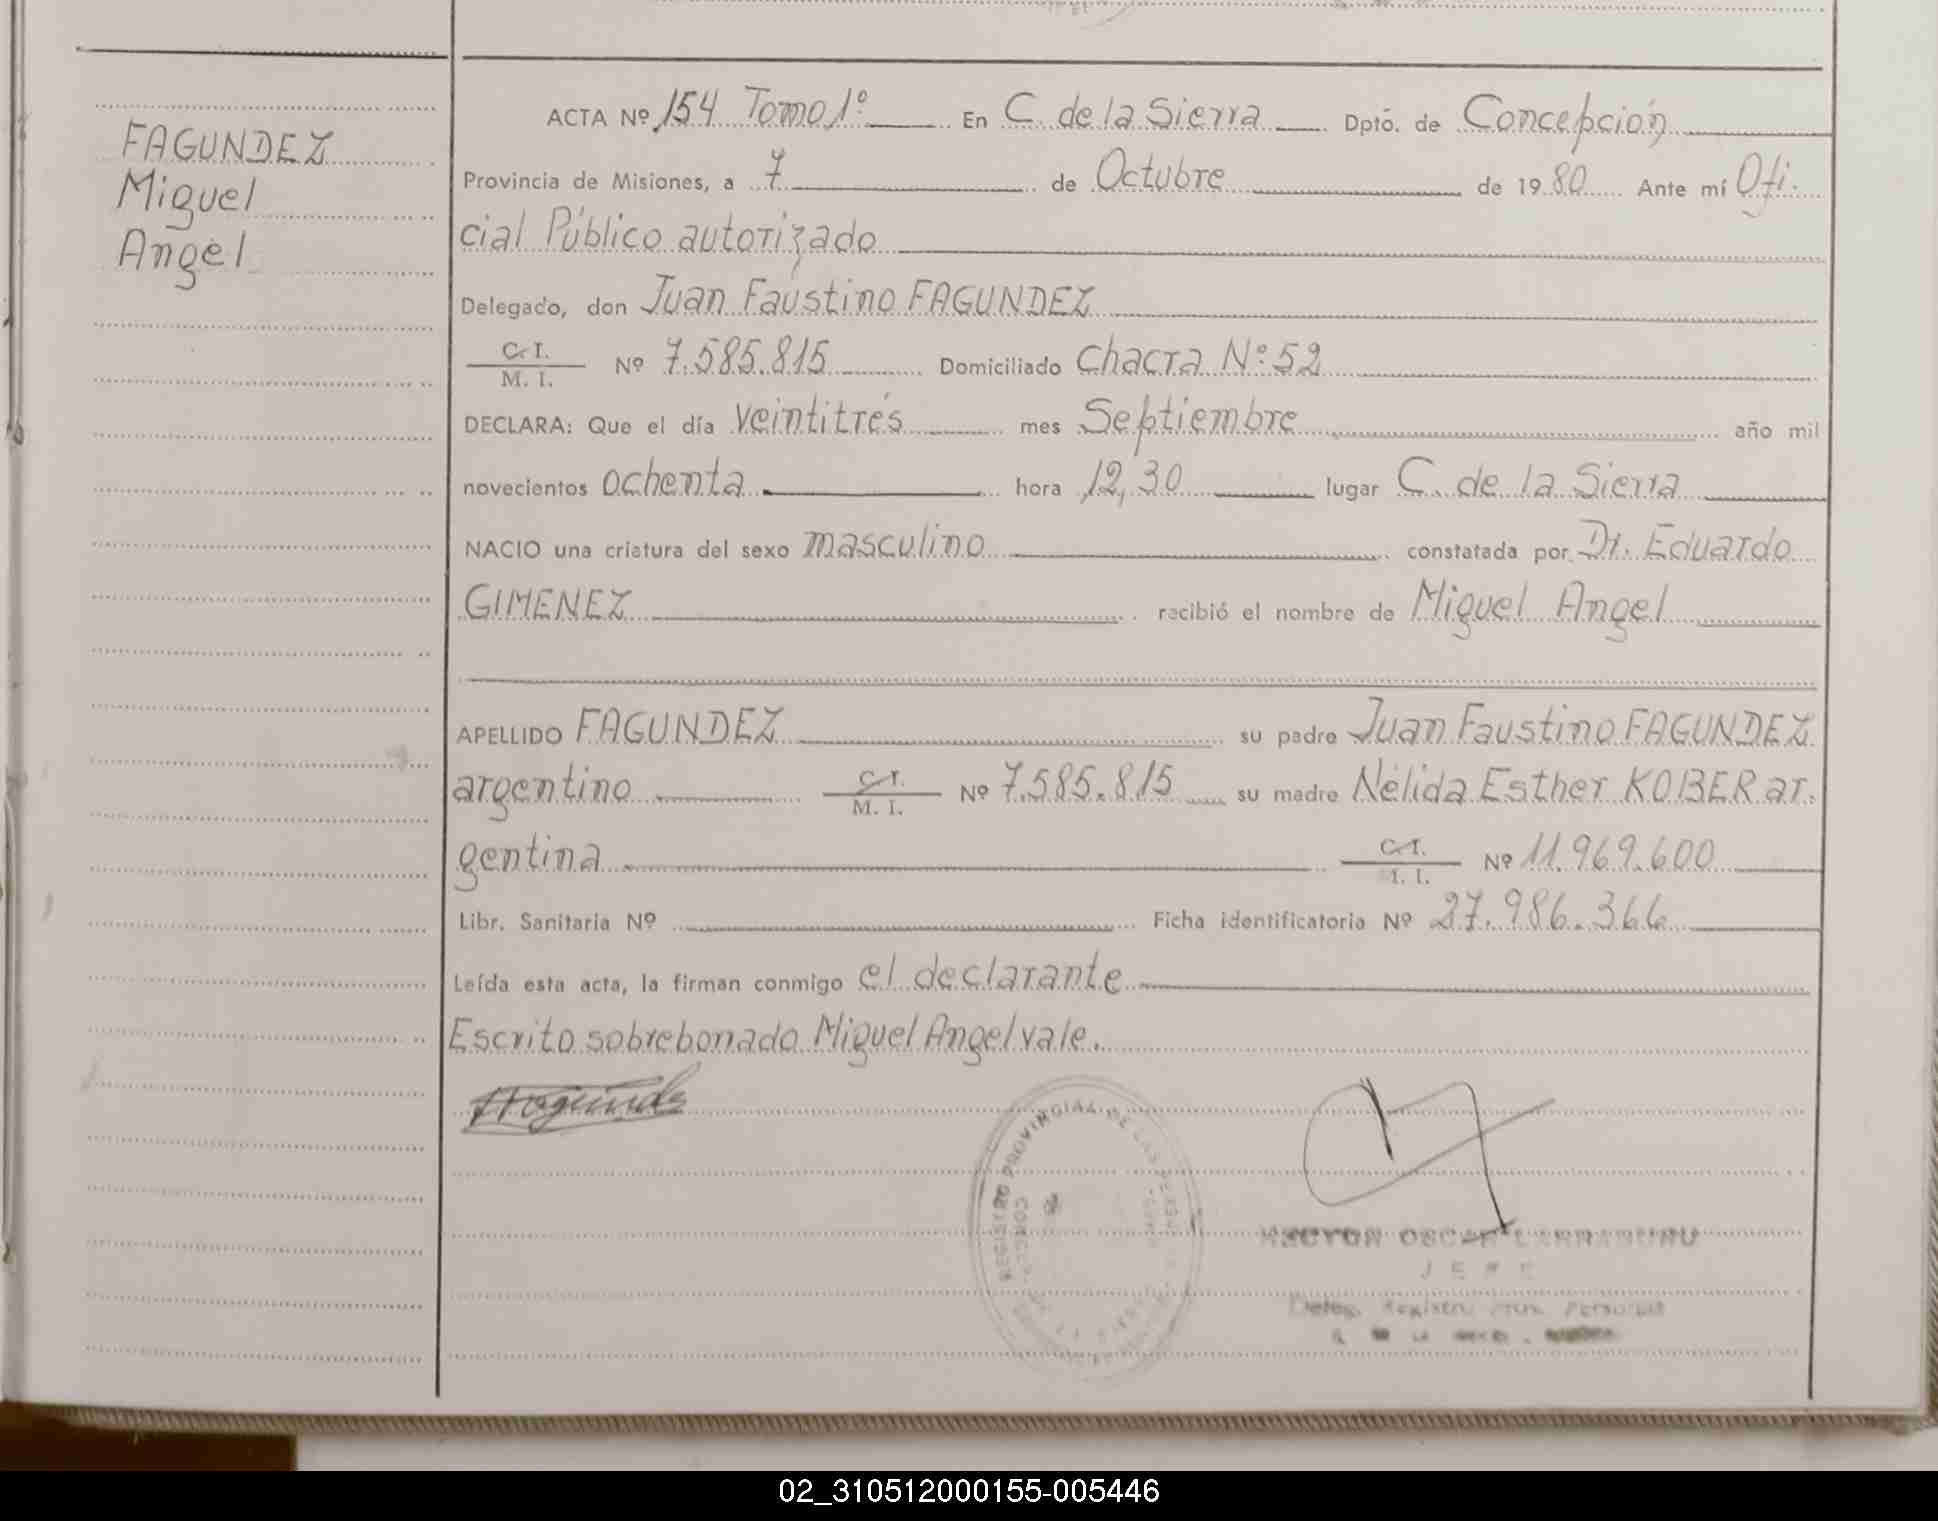 FAGUNDEZ
Miguel
Angel
ACTA Nº 154 Tomo 1º En C. de la Sierra Dptó. de Concepción
Provincia de Misiones, a 7 de Octubre de 1980 Ante mí Ofi.
cial Público autorizado
Delegado, don Juan Faustino FAGUNDEZ
C. I.
M. I. Nº 7.585.815 Domiciliado Chacra Nº 52
DECLARA: Que el día veintitrés mes Septiembre año mil
novecientos ochenta hora 12,30 lugar C. de la Sierra
NACIO una criatura del sexo masculino constatada por Dr. Eduardo
GIMENEZ recibió el nombre de Miguel Angel
APELLIDO FAGUNDEZ su padre Juan Faustino FAGUNDEZ
argentino C. I.
M. I. Nº 7.585.815 su madre Nélida Esther KOBER ar.
gentina C. I.
M. I. Nº 11.969.600
Libr. Sanitaria Nº Ficha identificatoria Nº 27.986.366
Leída esta acta, la firman conmigo el declarante
Escrito sobrebonado Miguel Angel vale.
REGISTRO PROVINCIAL DE LAS
OSCAR
JEFE
02_310512000155-005446